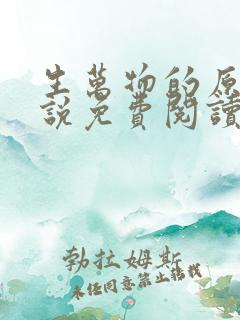 生萬物的原
說免費閱讀
勃拉姆斯
未任同意禁止转载